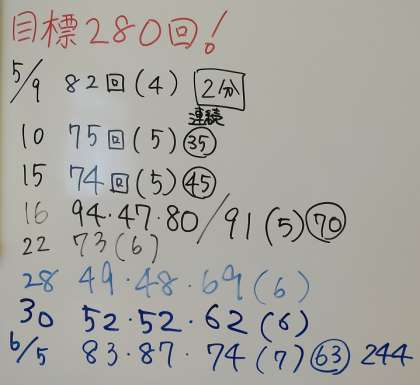 目標280回!
5/9 82回(4) 2分
連続
10 75回(5) 35
15 74回(5) 45
16 94・47・80/91(5) 70
22 73(6)
28 49・48・69(6)
30 52・52・62(6)
6/5 83・87・74(7) 63 244